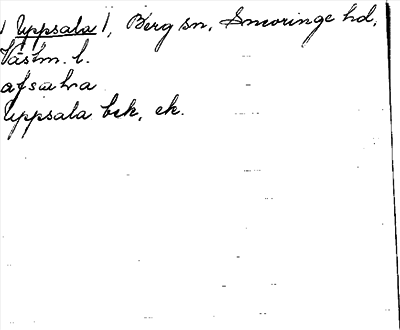 / Uppsala /, Berg sn, Snevringe hd,
Västm. l.
afsutra
Uppsala bek, ek.